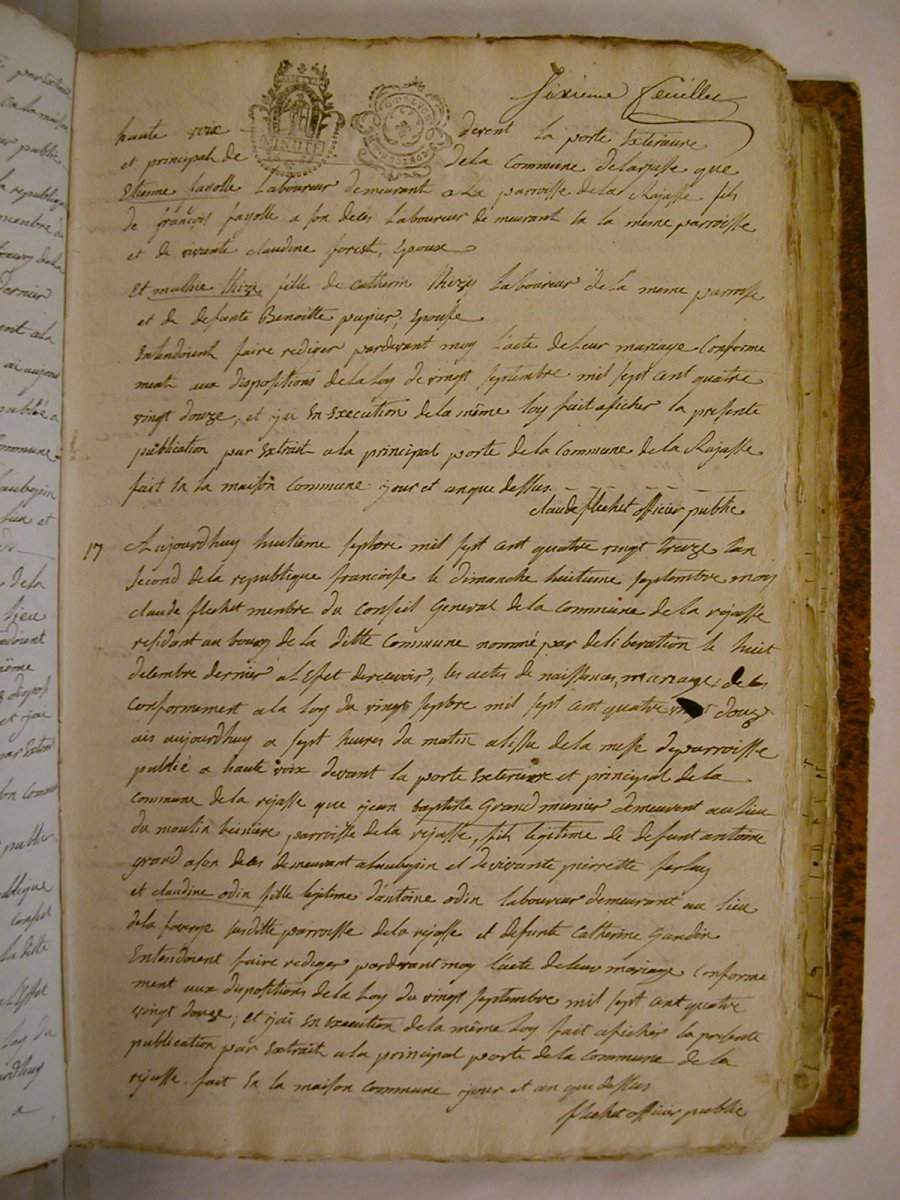 Sixieme feuillet
haute voix devent la porte Exterieure
et principal de de la Commune de larajasse que
Etienne fayolle Laboureur demeurant a La parroisse de la Rajasse fils
de françois fayolle a son deces Laboureur demeurant En la meme parroisse
et de vivante claudine forest, Epoux
Et mathie thizi fille de catherin thizy Laboureur de la meme parroisse
et de defunte Benoitte pupier, Epouse
Entendoient faire rediger pardevant moy L'acte de Leur mariage Conforme
ment aux dispositions de la Loy de vingt septembre mil sept cent quatre
vingt douze, et j'ai En Execution de la même Loy fait aficher la presente
publication par Extrait a la principal porte de la Commune de la Rajasse
fait En la maison Commune jour et an que dessus
claude flechet officier public
17 Aujourdhuy huitieme septbre mil sept cent quatre vingt treize Lan
second de la republique francoise le dimanche huitieme septembre moy
claude flechet menbre du Conseil General de la Commune de la rejasse
residant au bourg de la ditte Commune nommé par deliberation le huit
decembre dernier à L'Effet de recevoir, les actes de naissances, mariage de
Conformement a la Loy du vingt septbre mil sept cent quatre vingt douze
ais aujourdhuy a sept heures du matin a lissue de la messe de parroisse
publié a haute voix devant la porte Exterieure et principal de la
Commune de la rejasse que jean baptiste Grand munier demeurant au Lieu
du moulin beiniere parroisse de la rejasse, fils legitime de defunt antoine
grand a son deces demeurant a Laubepin et de vivante pierrette ferlay
et claudine odin fille legitime d'antoine odin laboureur demeurant au lieu
de la susditte parroisse de la rejasse et defunte Catherine
Entendoient faire rediger pardevant moy L'acte de leur mariage Conforme
ment aux dispositions de la Loy du vingt septembre mil sept cent quatre
vingt douze, et j'ai En Execution de la même Loy fait aficher la presente
publication par Extrait a la principal porte de la Commune de la
rejasse. fait En la maison Commune jour et an que dessus
flechet officier public